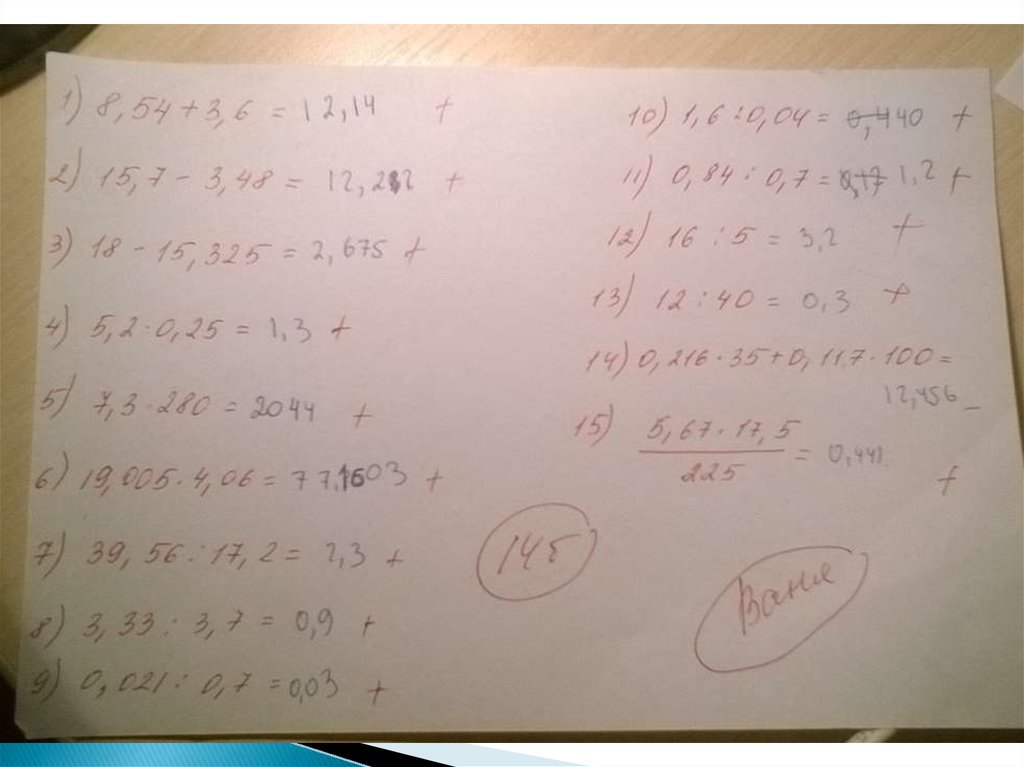 1) 8,54 + 3,6 = 12,14 +
2) 15,7 - 3,48 = 12,22 +
3) 18 - 15,325 = 2,675 +
4) 5,2 · 0,25 = 1,3 +
5) 7,3 · 280 = 2044 +
6) 19,005 · 4,06 = 77,1603 +
7) 39,56 : 17,2 = 2,3 +
8) 3,33 : 3,7 = 0,9 +
9) 0,021 : 0,7 = 0,03 +
10) 1,6 : 0,04 = 0,4 40 +
11) 0,84 : 0,7 = 1,2 +
12) 16 : 5 = 3,2 +
13) 12 : 40 = 0,3 +
14) 0,216 · 35 + 0,117 · 100 =
12,456 -
15) 5,67 · 17,5
225
= 0,441 +
14б
Ваня